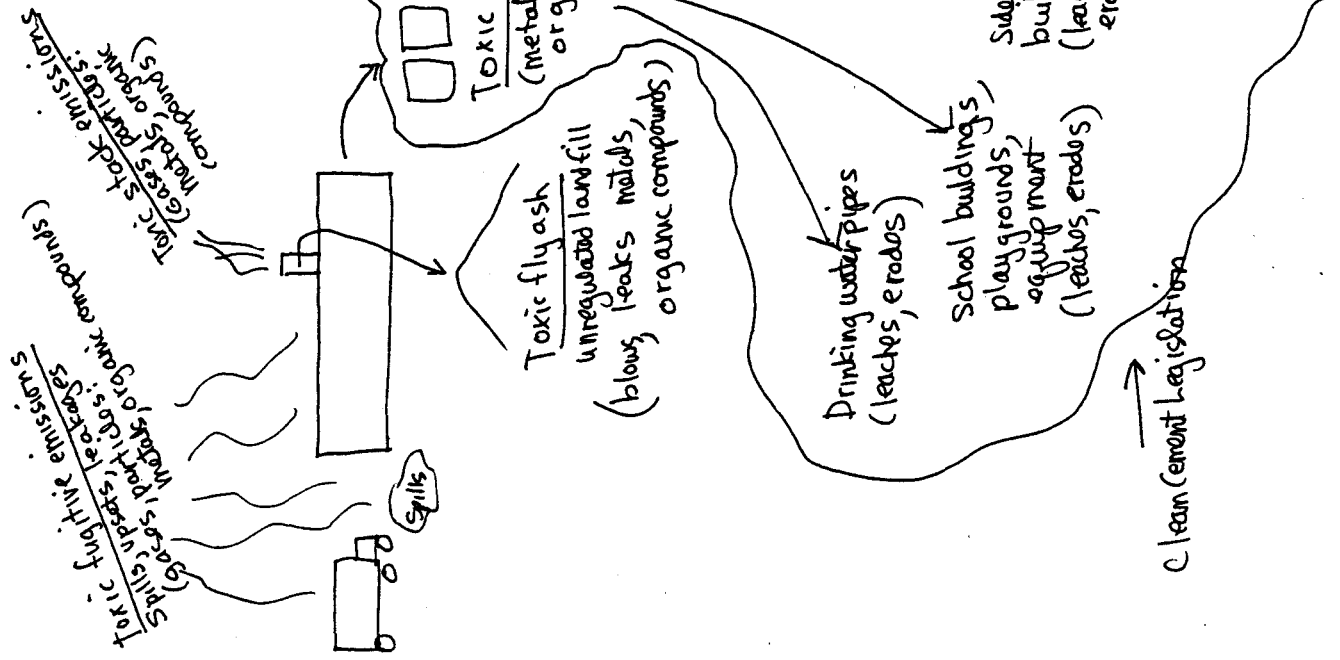 Toxic fugitive emissions
Spills, upsets, leakages
(gases, particles:
metals, organic compounds)
Toxic stack emissions
(Gases, particles:
metals, organic
compounds)
Spills
Toxic fly ash
unregulated landfill
(blows, leaks metals,
organic compounds)
Toxic
(metal
org
Drinking water pipes
(leaches, erodes)
School buildings,
playgrounds,
equipment
(leaches, erodes)
Side
bui
(lea
ero
Clean Cement Legislation